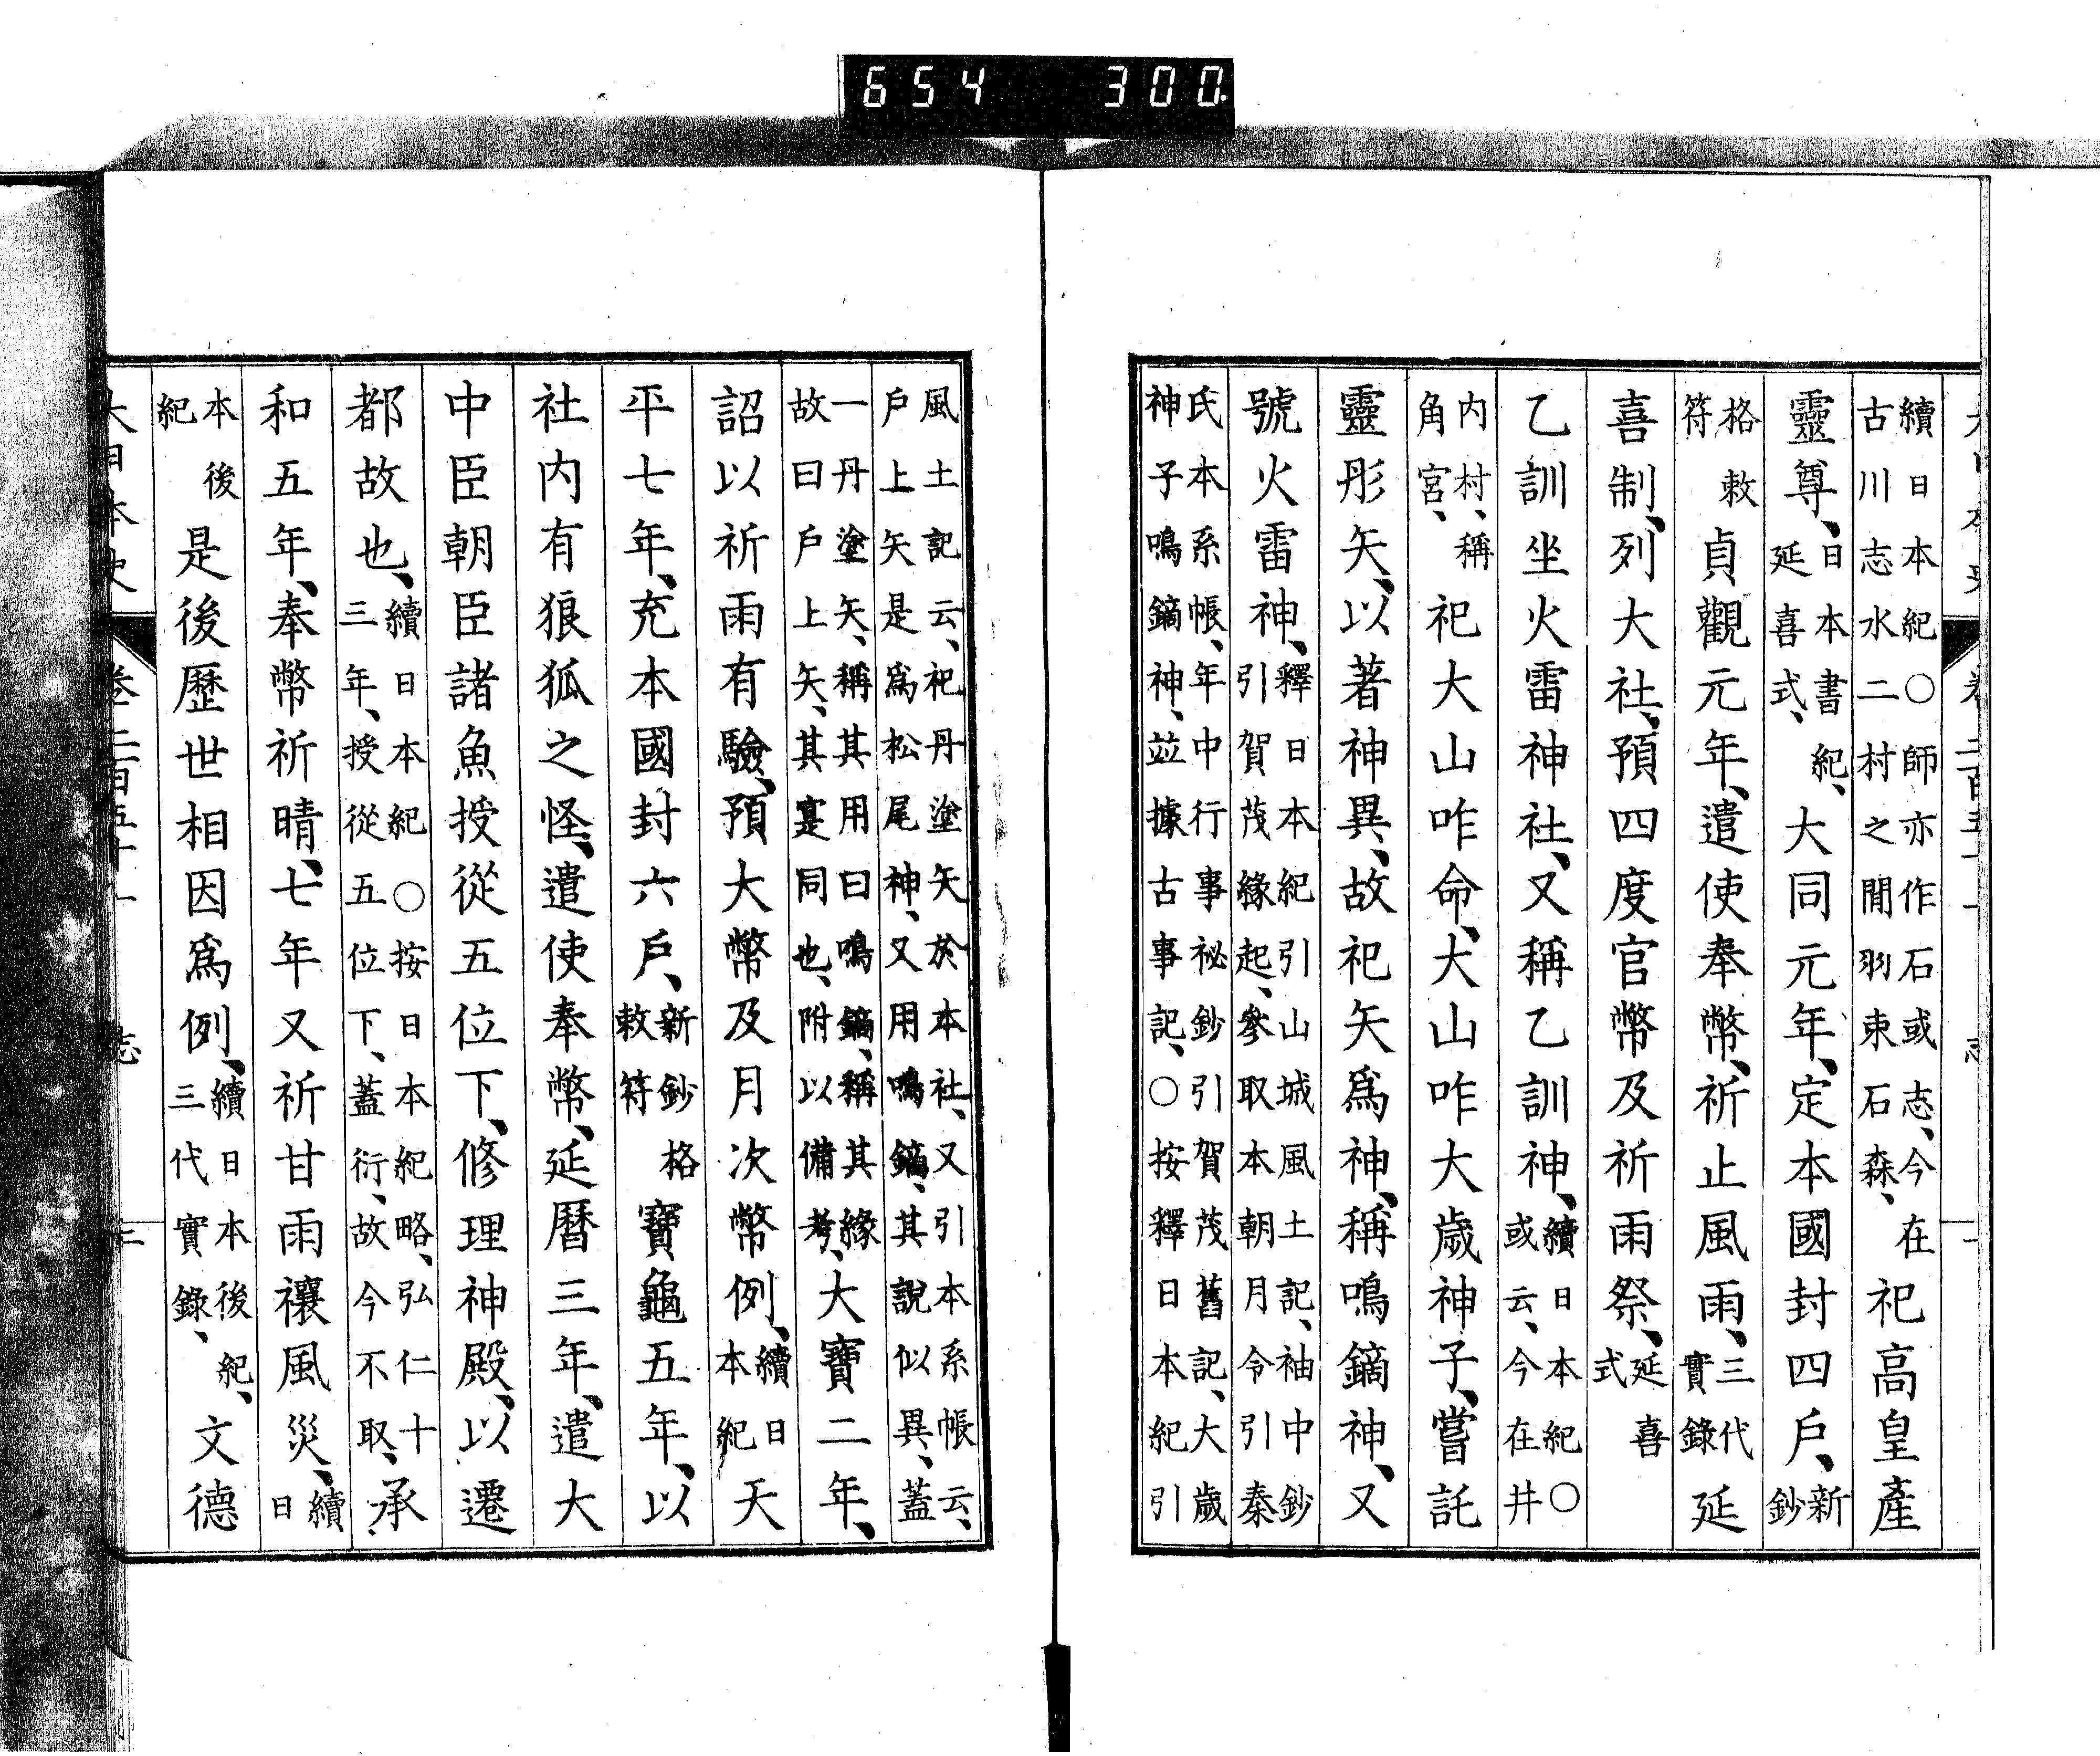 續日本紀〇師亦作石或志、今在
古川志水二村之間羽束石森、
祀高皇產
靈尊、
日本書紀、
延喜式、
大同元年、定本國封四戶、
新
鈔
格敕
符
貞觀元年、遣使奉幣、祈止風雨、
三代
實錄
延
喜制、列大社、預四度官幣及祈雨祭、
延喜
式
乙訓坐火雷神社、又稱乙訓神、
續日本紀〇
或云、今在井
内村、稱
角宮、
祀大山咋命、大山咋大歲神子、嘗託
靈彤矢、以著神異、故祀矢爲神、稱鳴鏑神、又
號火雷神、
釋日本紀引山城風土記、袖中鈔
引賀茂緣起、參取本朝月令引秦
氏本系帳、年中行事祕鈔引賀茂舊記、大歲
神子鳴鏑神、竝據古事記、〇按釋日本紀引
風土記云、祀丹塗矢於本社、又引本系帳云、
戶上矢是爲松尾神、又用鳴鏑、其說似異、蓋
一丹塗矢、稱其用曰鳴鏑、稱其緣
故曰戶上矢、其寔同也、附以備考、
大寶二年、
詔以祈雨有驗、預大幣及月次幣例、
續日
本紀
天
平七年、充本國封六戶、
新鈔格
敕符
寶龜五年、以
社内有狼狐之怪、遣使奉幣、延曆三年、遣大
中臣朝臣諸魚授從五位下、修理神殿、以遷
都故也、
續日本紀〇按日本紀略、弘仁十
三年、授從五位下、蓋衍、故今不取、
承
和五年、奉幣祈晴、七年又祈甘雨禳風災、
續
日
本後
紀
是後歷世相因爲例、
續日本後紀、
三代實錄、
文德
大日本史
志